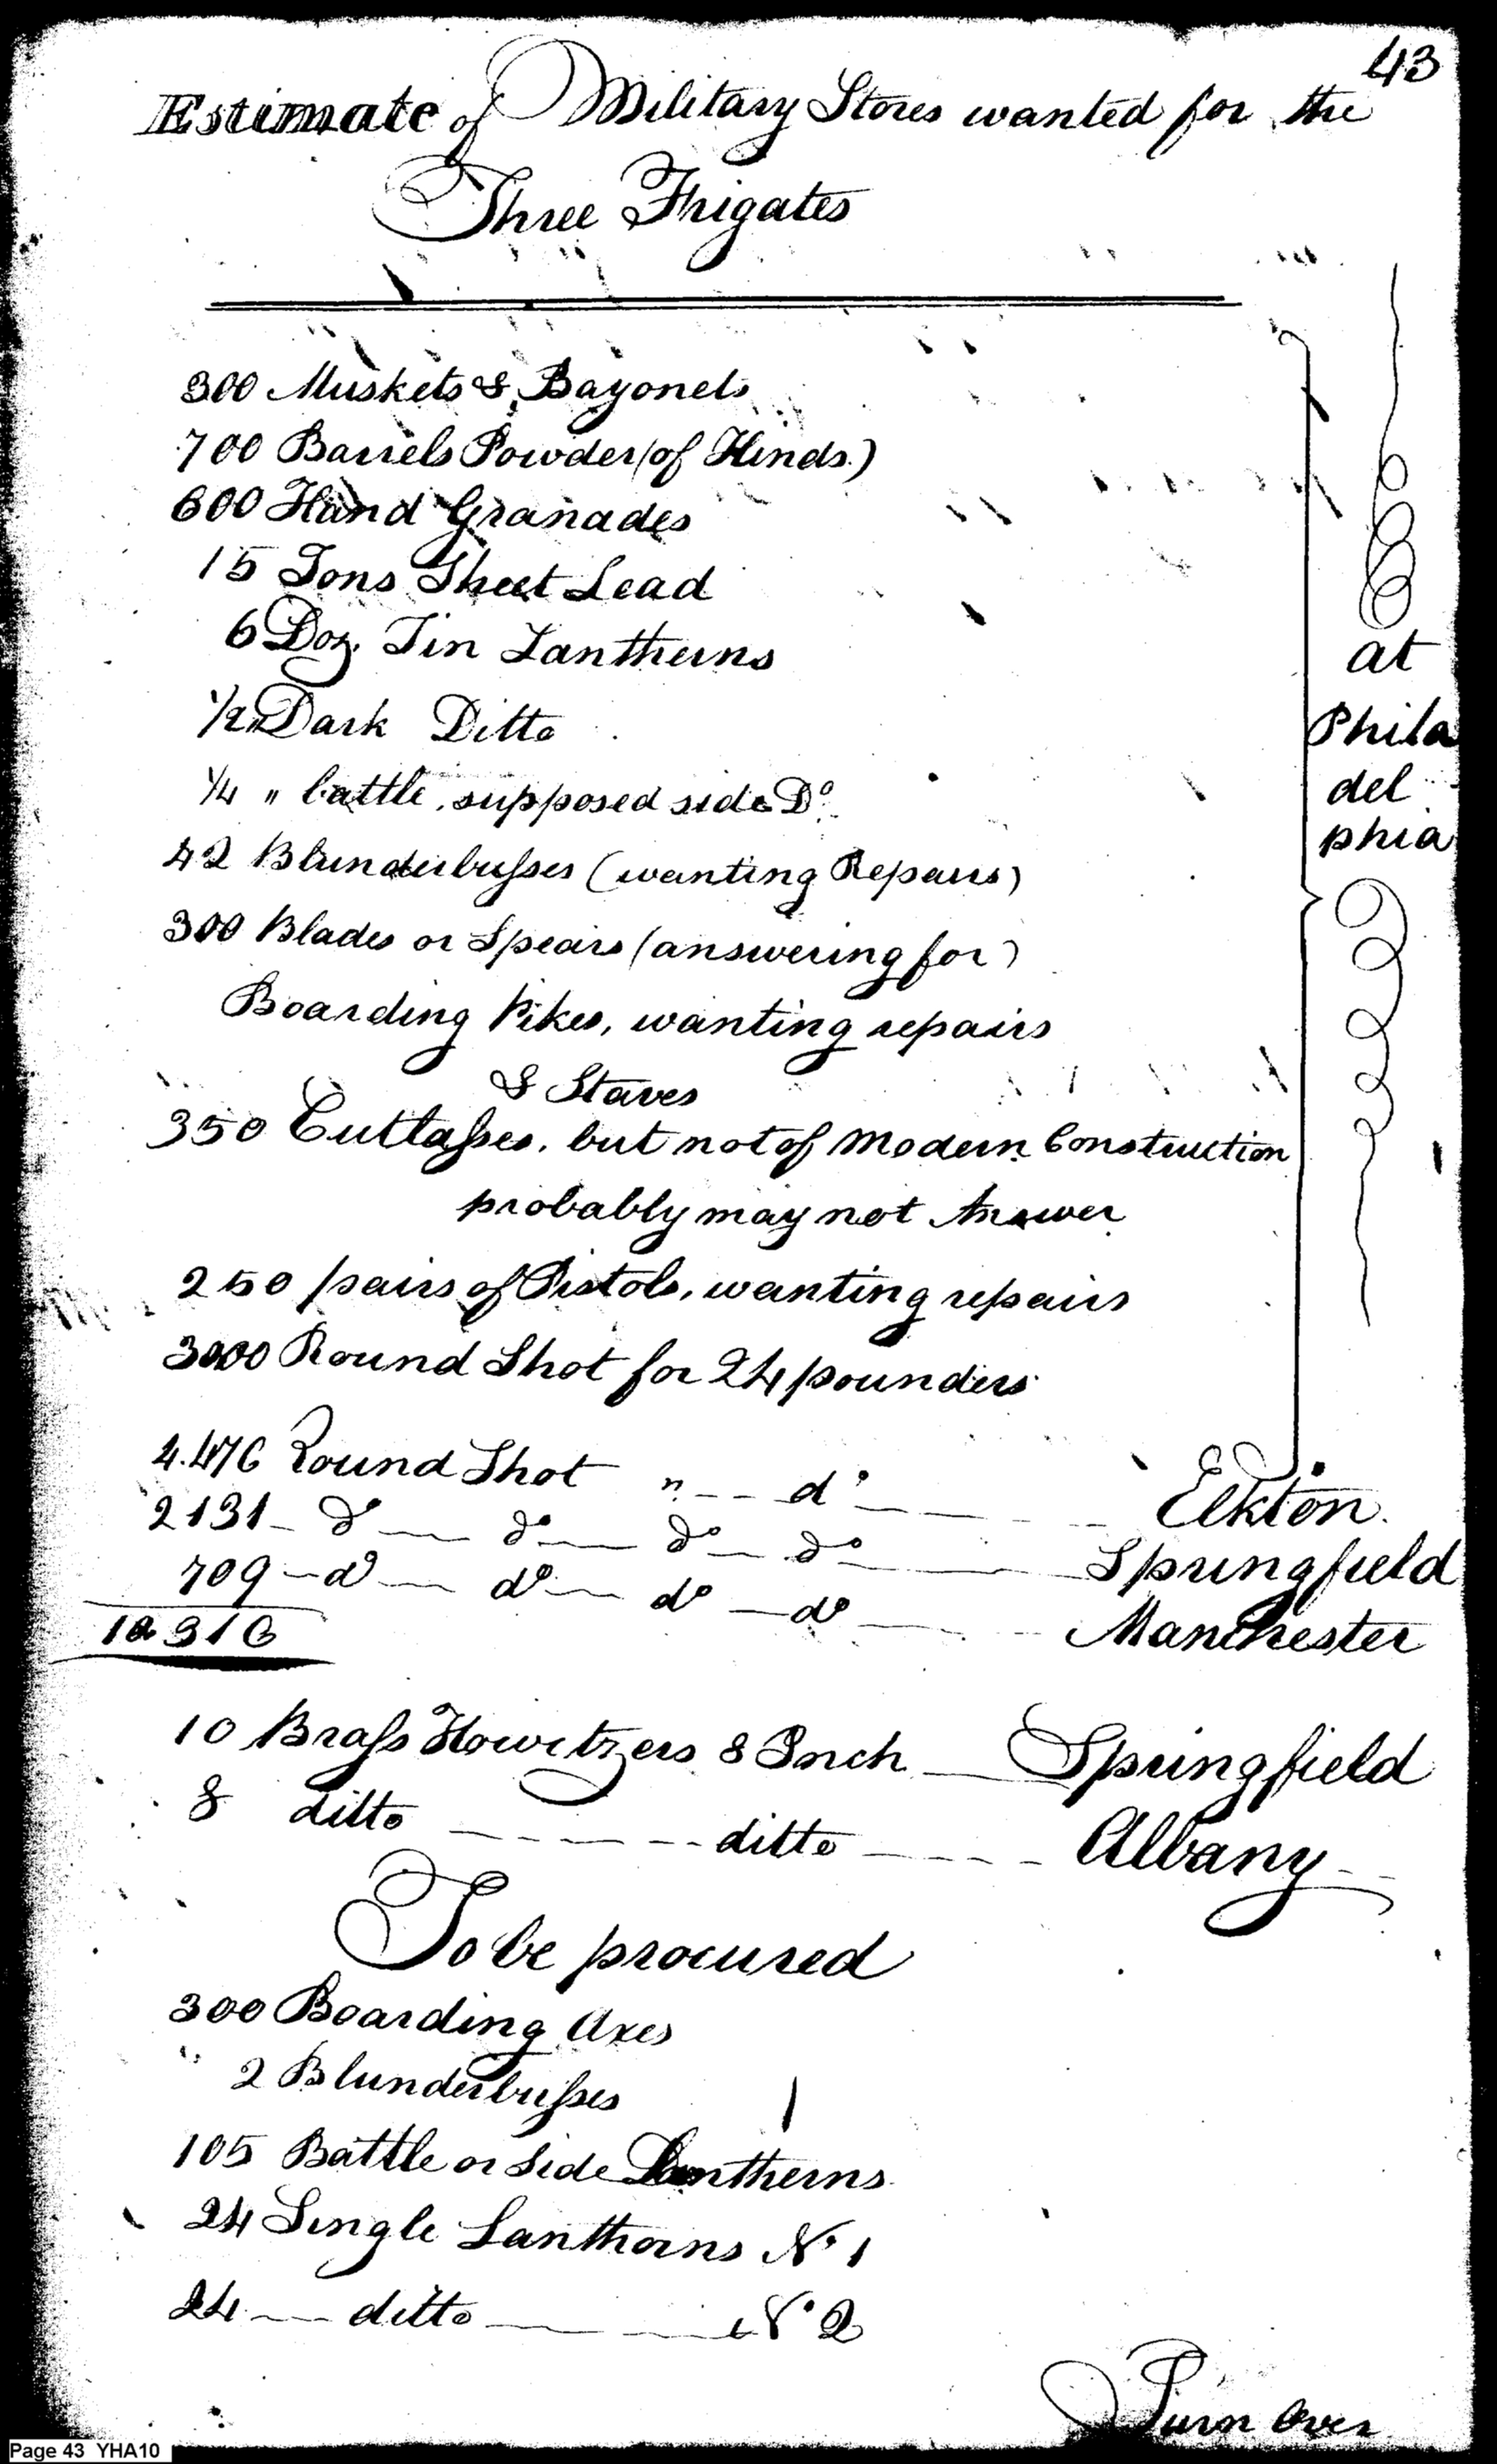 43
Estimate of Military Stores wanted for the
Three Frigates
300 Muskets & Bayonets
700 Barrels Powder (of Kinds.)
600 Hand Granades
15 Tons Sheet Lead
6 Doz. Tin Lantherns
1/2 " Dark Ditto
1/4 " battle, supposed side Do.
42 Blunderbusses (wanting Repairs)
300 Blades or Spears (answering for)
Boarding Pikes, wanting repairs
& Staves
350 Cutlasses, but not of modern Construction
probably may not Answer
250 pairs of Pistols, wanting repairs
3000 Round Shot for 24 pounders
at
Phila
del
phia
4.476 Round Shot " -- do -- Elkton.
2131 - do -- do -- do -- do -- Springfield
709 - do -- do -- do -- do -- Manchester
10316
10 Brass Howitzers 8 Inch -- Springfield
8 ditto ---- ditto ---- Albany --
To be procured
300 Boarding Axes
" 2 Blunderbusses
105 Battle or Side Lantherns
24 Single Lanthorns No 1
24 -- ditto -- No 2
Turn Over
Page 43 YHA10